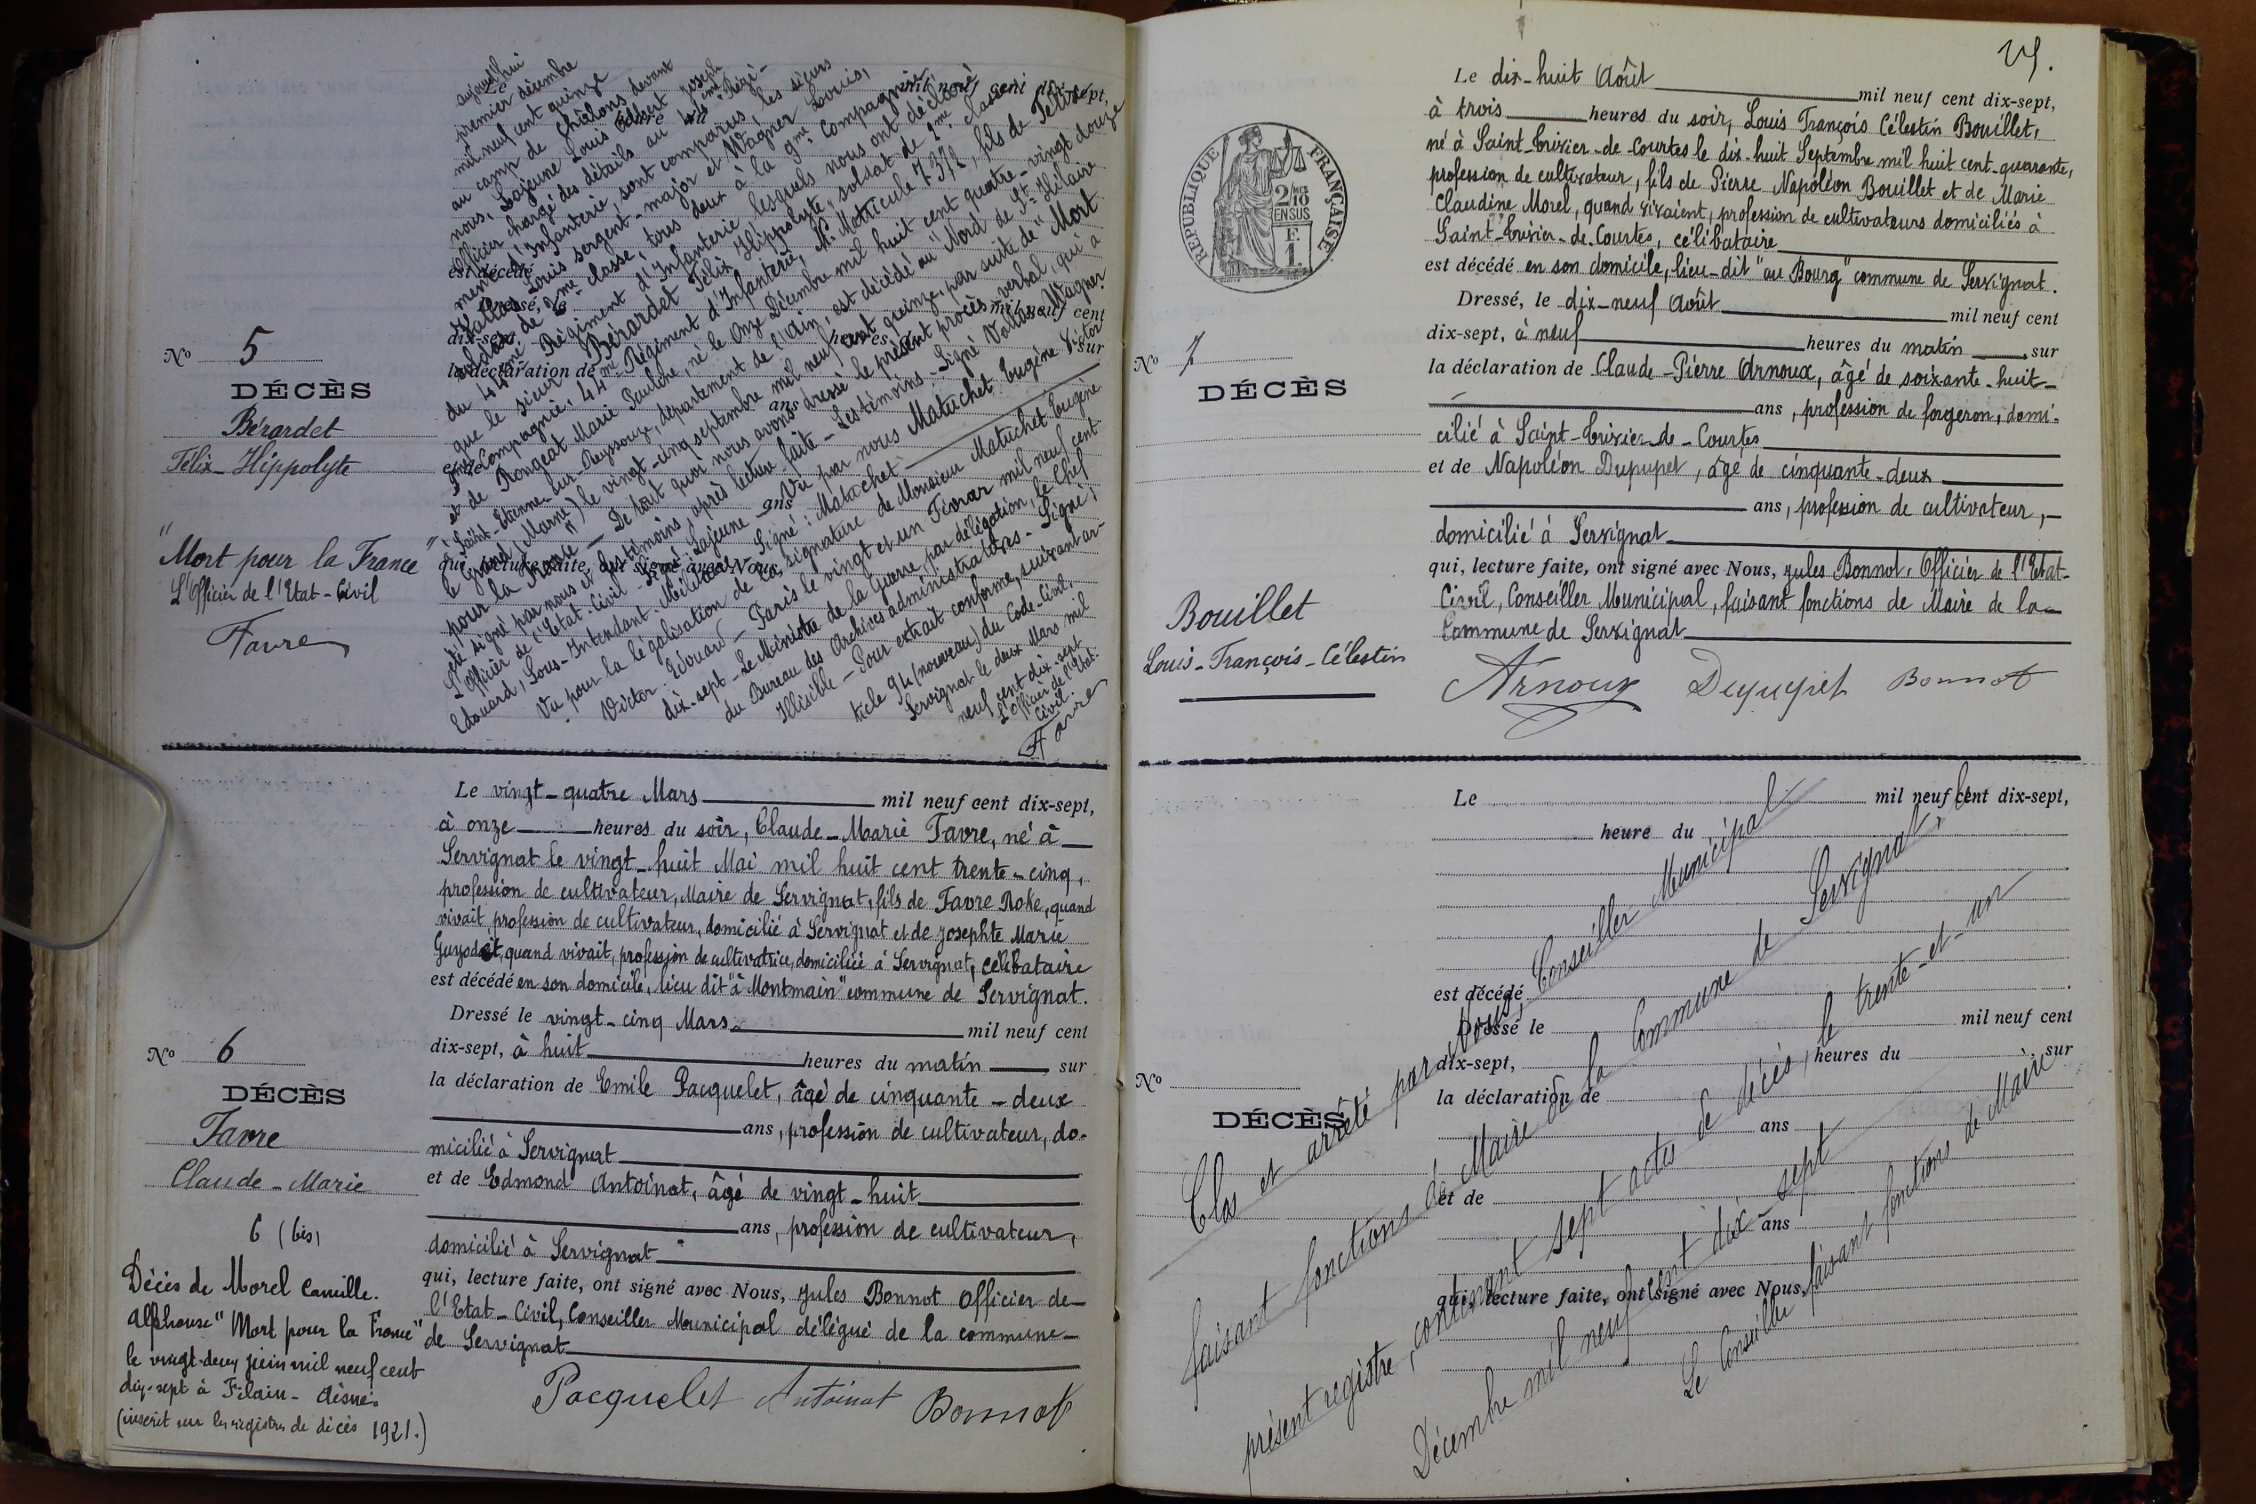 N° 5
DÉCÈS
Bérardet
Félix-Hippolyte
"Mort pour la France"
L'Officier de l'Etat-Civil
Favre
aujourd'hui
premier décembre
mil neuf cent quinze
au camp de Châlons devant
nous, Lajeune Louis Joseph
Officier chargé des détails au 44ème Régi-
ment d'Infanterie, sont comparus les sieurs
Louis sergent-major et Wagner Louis,
soldat de 2me classe, tous deux à la 9me Compagnie
du 44me Régiment d'Infanterie lesquels nous ont déclaré
que le sieur Bérardet Félix Hippolyte, soldat de 2me classe
9me Compagnie, 44me Régiment d'Infanterie, N° Matricule fils de Félix
et de Rongeat Marie Pauline, né le Onze Décembre mil huit cent quatre-vingt douze
à Saint-Etienne-sur-Reyssouze, département de l'Ain, est décédé au "Nord de St-Hilaire
le Grand, Marne") le vingt-cinq septembre mil neuf cent quinze, par suite de "Mort
pour la France" - De tout quoi nous avons dressé le présent procès verbal, qui a
été signé par nous et les témoins après lecture faite - Les témoins - Signé Wagner
L'Officier de l'Etat-Civil - Signé Lajeune Vu par nous Matuchet Eugène Victor
Edouard, Sous-Intendant Militaire Signé: Matuchet
Vu pour la légalisation de la signature de Monsieur Matuchet Eugène
Victor Edouard - Paris le vingt et un Février mil neuf cent
dix-sept - Le Ministre de la Guerre, par délégation, le Chef
du Bureau des Archives administratives - Signé:
Illisible - Pour extrait conforme, suivant ar-
ticle 94 (nouveau) du Code-Civil,
Servignat le deux Mars mil
neuf cent dix-sept
L'Officier de l'Etat-
Civil.
Favre
mil neuf cent dix-sept,
est décédé
Dressé, le mil neuf cent
dix-sept, heures sur
la déclaration de
ans
et de
ans
qui, lecture faite, ont signé avec Nous
N° 6
DÉCÈS
Favre
Claude-Marie
6 (bis)
Décès de Morel Camille.
Alphonse "Mort pour la France"
le vingt-deux juin mil neuf cent
dix-sept à Filain - Aisne.
(inscrit sur les registres de décès 1921.)
Le vingt-quatre Mars mil neuf cent dix-sept,
à onze heures du soir, Claude-Marie Favre, né à
Servignat le vingt-huit Mai mil huit cent trente-cinq,
profession de cultivateur, Maire de Servignat, fils de Favre Roke, quand
vivait profession de cultivateur, domicilié à Servignat et de Josephte Marie
quand vivait, profession de cultivatrice, domiciliée à Servignat, célibataire
est décédé en son domicile, lieu dit "à Montmain" commune de Servignat.
Dressé le vingt-cinq Mars mil neuf cent
dix-sept, à huit heures du matin sur
la déclaration de Emile Pacquelet, âgé de cinquante-deux
ans, profession de cultivateur, do-
micilié à Servignat
et de Edmond Antoinat, âgé de vingt-huit
ans, profession de cultivateur,
domicilié à Servignat
qui, lecture faite, ont signé avec Nous, Jules Bonnot Officier de
l'Etat-Civil, Conseiller Municipal délégué de la commune
de Servignat
Pacquelet Antoinat Bonnot
RÉPUBLIQUE FRANÇAISE
2/10 EN SUS
F.
1.
N° 7
DÉCÈS
Bouillet
Louis-François-Célestin
Le dix-huit Août mil neuf cent dix-sept,
à trois heures du soir, Louis François Célestin Bouillet,
né à Saint-Trivier-de-Courtes le dix-huit Septembre mil huit cent-quarante,
profession de cultivateur, fils de Pierre Napoléon Bouillet et de Marie
Claudine Morel, quand vivaient, profession de cultivateurs domiciliés à
Saint-Trivier-de-Courtes, célibataire
est décédé en son domicile, lieu-dit "au Bourg" commune de Servignat.
Dressé, le dix-neuf Août mil neuf cent
dix-sept, à neuf heures du matin, sur
la déclaration de Claude-Pierre Arnoux, âgé de soixante-huit
ans, profession de forgeron, domi-
cilié à Saint-Trivier-de-Courtes
et de Napoléon Dupupet, âgé de cinquante-deux
ans, profession de cultivateur,
domicilié à Servignat
qui, lecture faite, ont signé avec Nous, Jules Bonnot, Officier de l'Etat-
Civil, Conseiller Municipal, faisant fonctions de Maire de la
Commune de Servignat
Arnoux Dupupet Bonnot
N°
DÉCÈS
Le mil neuf cent dix-sept,
heure du
est décédé
Dressé le mil neuf cent
dix-sept, heures du , sur
la déclaration de
ans
et de
ans
qui, lecture faite, ont signé avec Nous,
Clos et arrêté par Nous, Conseiller Municipal
faisant fonctions de Maire de la Commune de Servignat, le
présent registre, contenant sept actes de décès, le trente-et-un
Décembre mil neuf cent dix-sept
Le Conseiller faisant fonctions de Maire